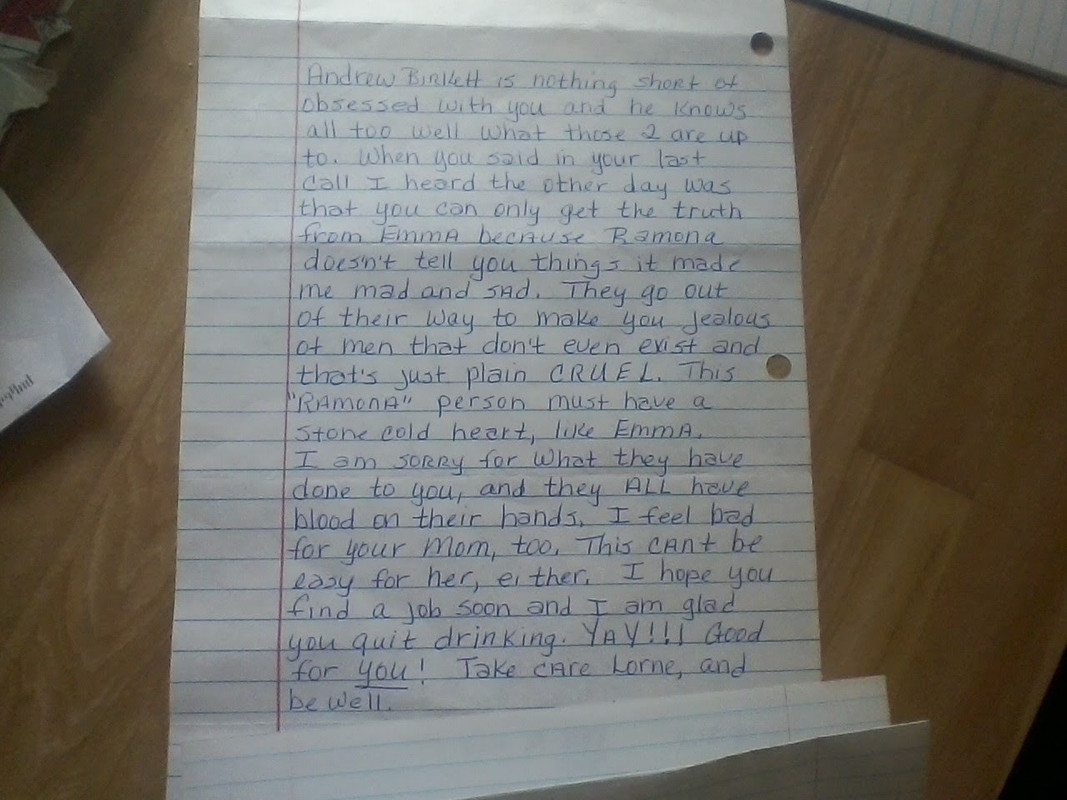 Andrew Birkett is nothing short of
obsessed with you and he knows
all too well what those 2 are up
to. When you said in your last
call I heard the other day was
that you can only get the truth
from EmmA because Ramona
doesn't tell you things it made
me mad and SAD. They go out
of their way to make you jealous
of men that don't even exist and
that's just plain CRUEL. This
"RAmonA" person must have a
stone cold heart, like EmmA.
I am SORRY for what they have
done to you, and they ALL have
blood on their hands. I feel bad
for your Mom, too. This CAnt be
easy for her, either. I hope you
find a job soon and I am glad
you quit drinking. YAY!!! Good
for you! Take CAre Lorne, and
be well.